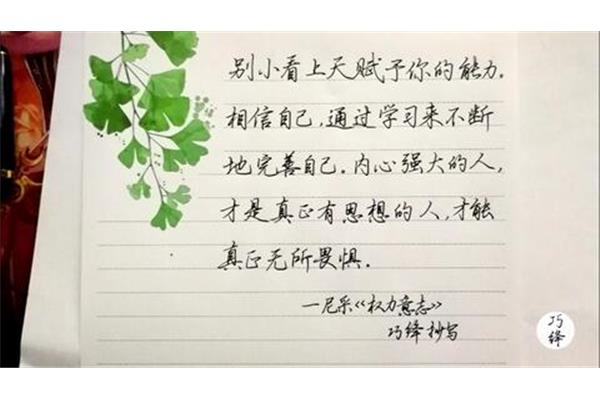 别小看上天赋予你的能力。
相信自己，通过学习来不断
地完善自己。内心强大的人，
才是真正有思想的人，才能
真正无所畏惧。
一尼采《权力意志》
巧绛抄写
巧
绛